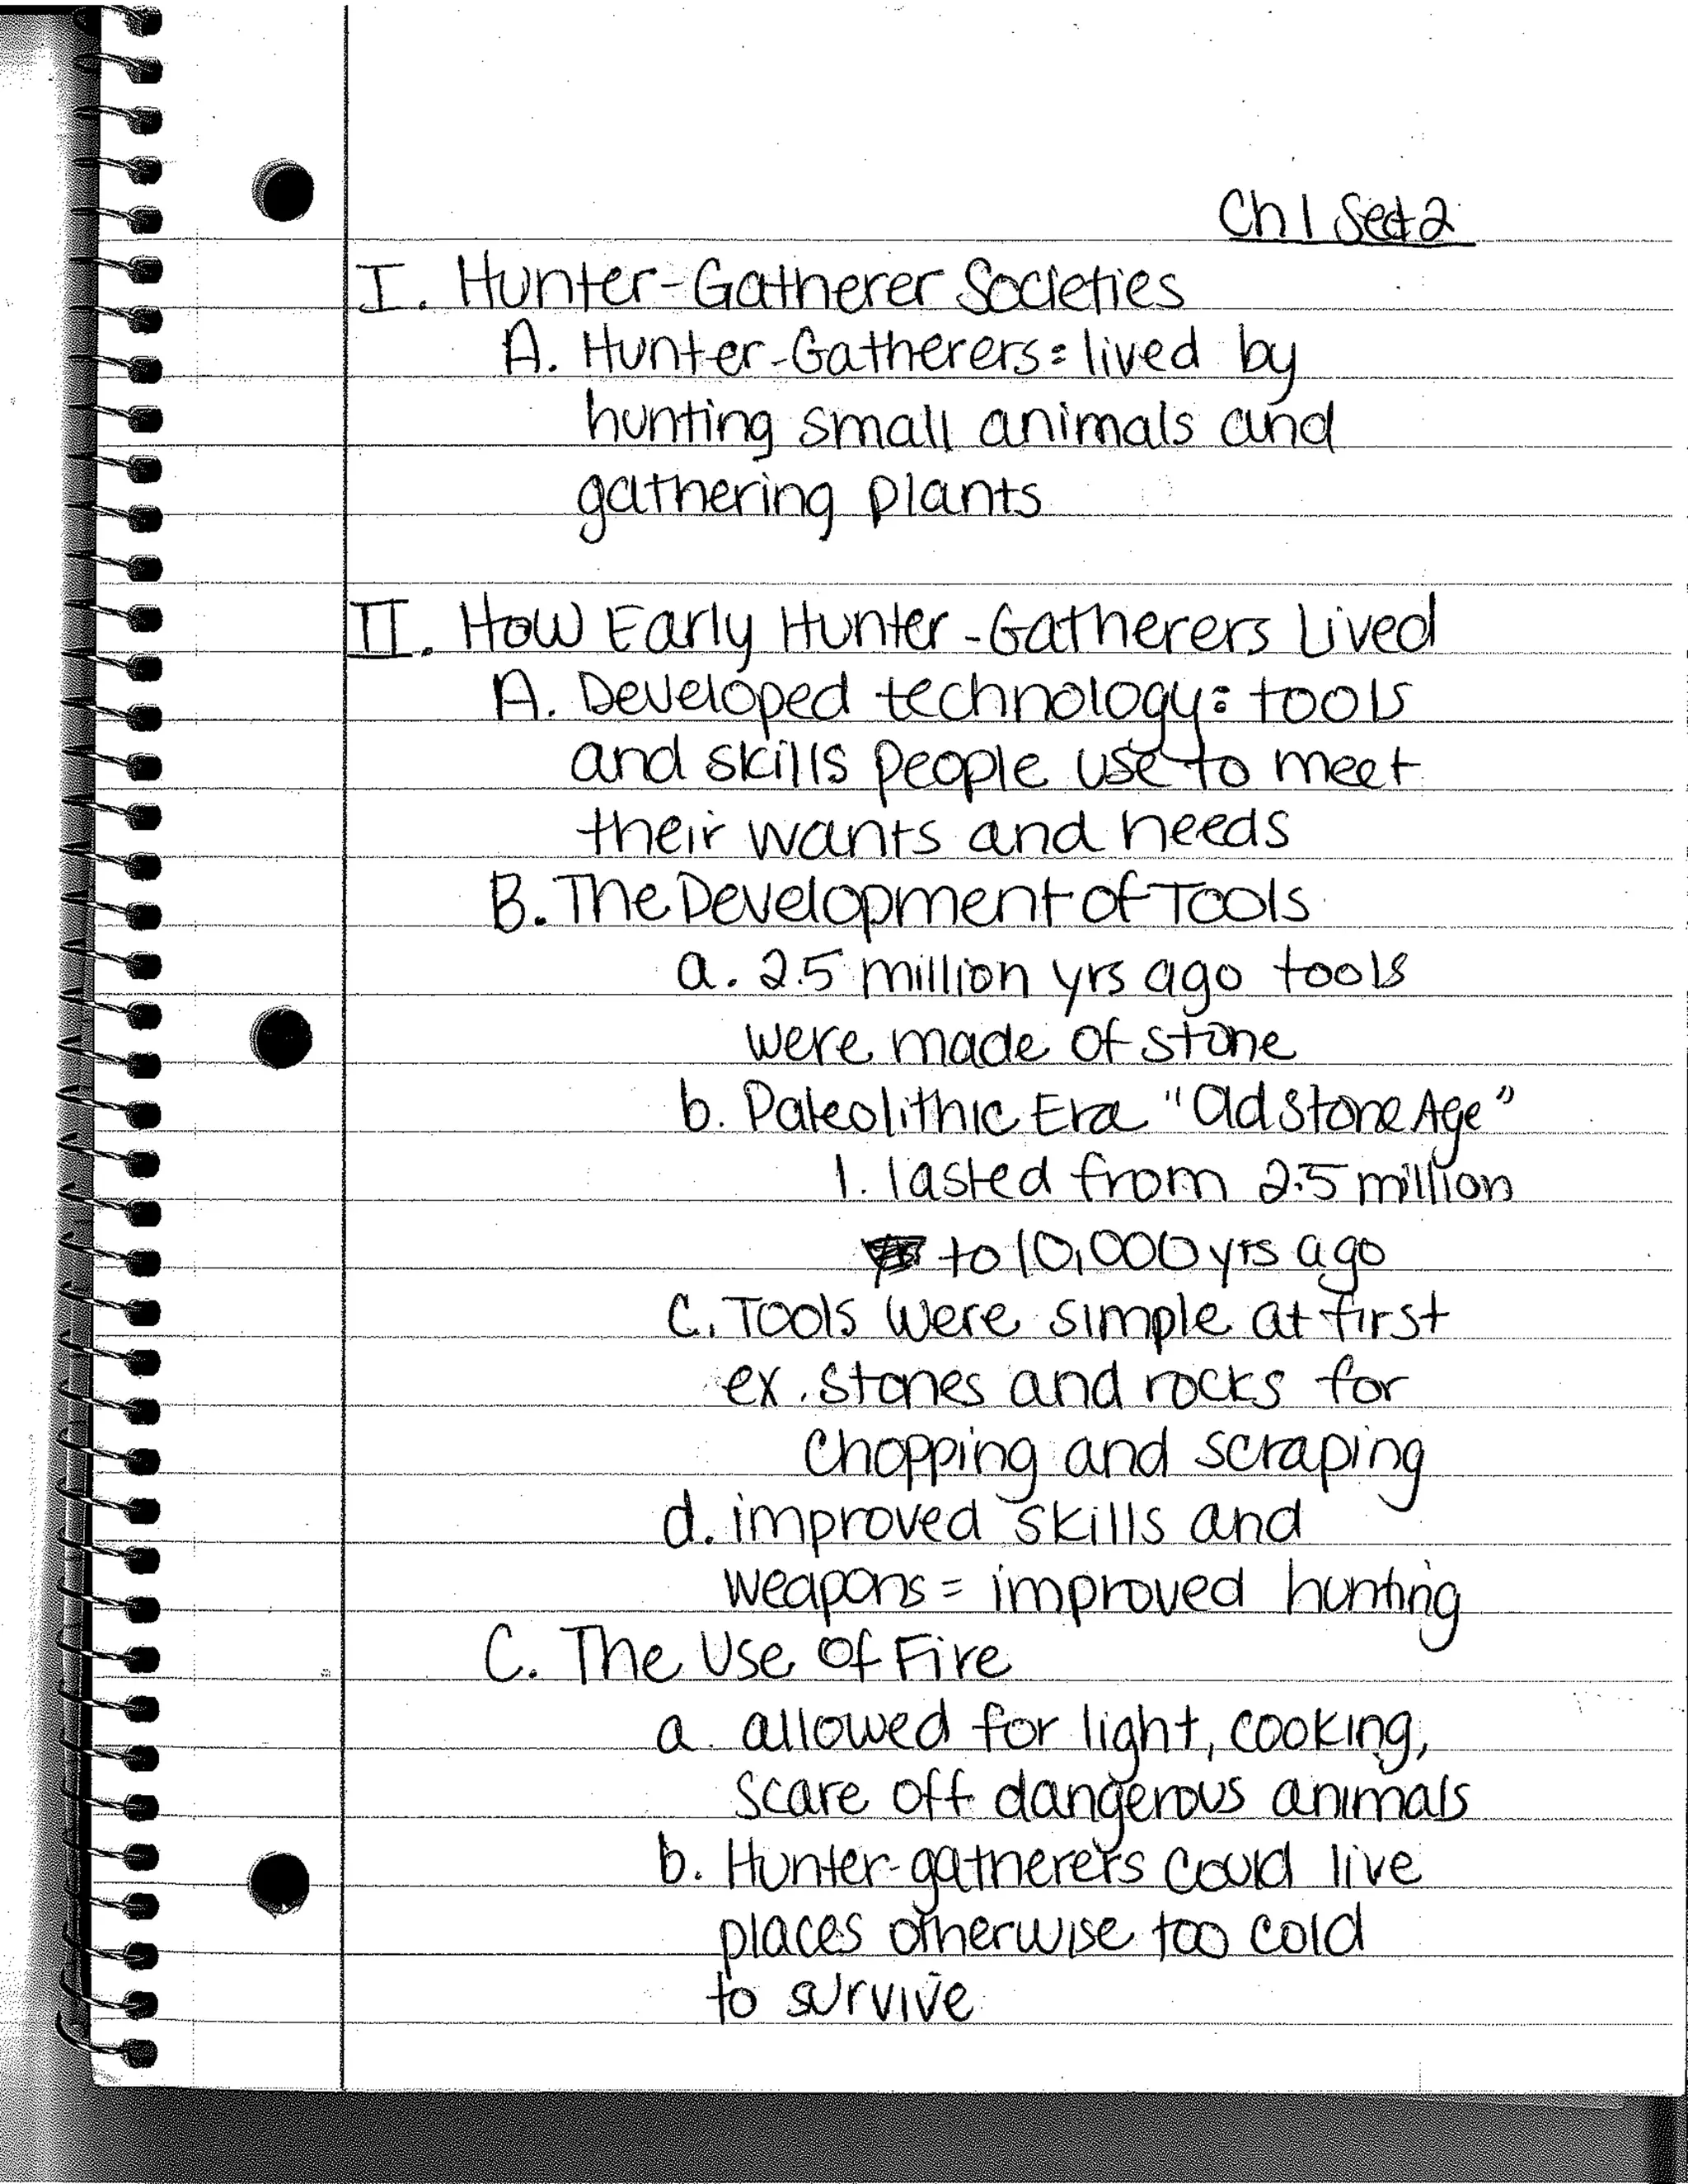 Ch 1 Sect 2
I. Hunter-Gatherer Societies
A. Hunter-Gatherers: lived by
hunting small animals and
gathering plants
II. How Early Hunter-Gatherers Lived
A. Developed technology: tools
and skills people use to meet
their wants and needs
B. The Development of Tools
a. 2.5 million yrs ago tools
were made of stone
b. Paleolithic Era "Old Stone Age"
1. lasted from 2.5 million
to 10,000 yrs ago
C. Tools were simple at first
ex. stones and rocks for
chopping and scraping
d. improved skills and
weapons = improved hunting
C. The Use of Fire
a. allowed for light, cooking,
scare off dangerous animals
b. Hunter-gatherers could live
places otherwise too cold
to survive